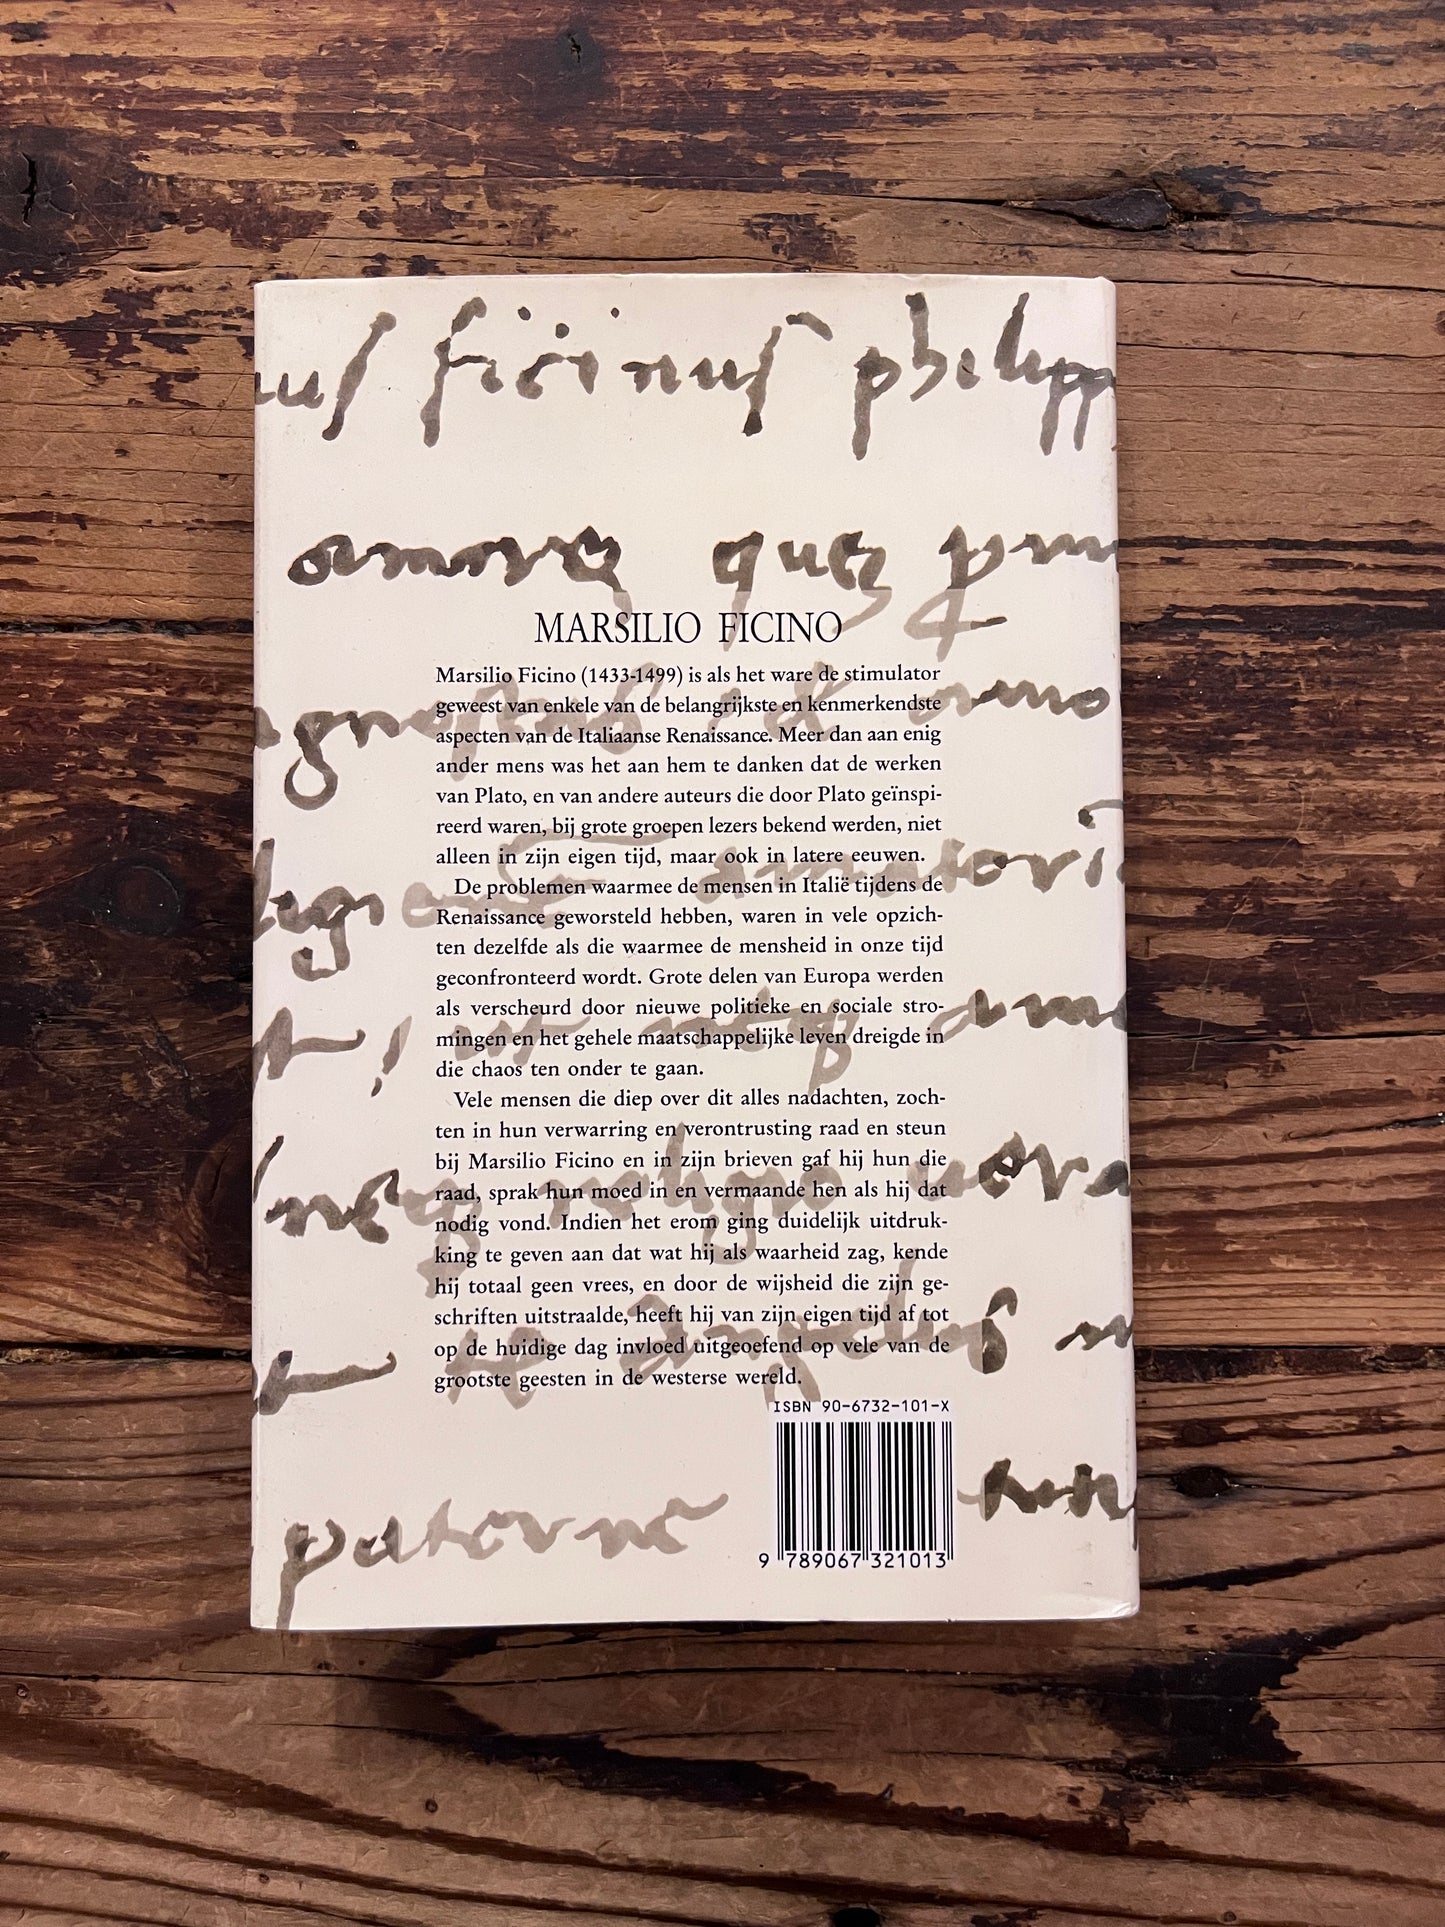 us ficinus philipp
amore quę
MARSILIO FICINO
Marsilio Ficino (1433-1499) is als het ware de stimulator
geweest van enkele van de belangrijkste en kenmerkendste
aspecten van de Italiaanse Renaissance. Meer dan aan enig
ander mens was het aan hem te danken dat de werken
van Plato, en van andere auteurs die door Plato geïnspi-
reerd waren, bij grote groepen lezers bekend werden, niet
alleen in zijn eigen tijd, maar ook in latere eeuwen.
De problemen waarmee de mensen in Italië tijdens de
Renaissance geworsteld hebben, waren in vele opzich-
ten dezelfde als die waarmee de mensheid in onze tijd
geconfronteerd wordt. Grote delen van Europa werden
als verscheurd door nieuwe politieke en sociale stro-
mingen en het gehele maatschappelijke leven dreigde in
die chaos ten onder te gaan.
Vele mensen die diep over dit alles nadachten, zoch-
ten in hun verwarring en verontrusting raad en steun
bij Marsilio Ficino en in zijn brieven gaf hij hun die
raad, sprak hun moed in en vermaande hen als hij dat
nodig vond. Indien het erom ging duidelijk uitdruk-
king te geven aan dat wat hij als waarheid zag, kende
hij totaal geen vrees, en door de wijsheid die zijn ge-
schriften uitstraalde, heeft hij van zijn eigen tijd af tot
op de huidige dag invloed uitgeoefend op vele van de
grootste geesten in de westerse wereld.
ISBN 90-6732-101-X
9 789067 321013
paterne